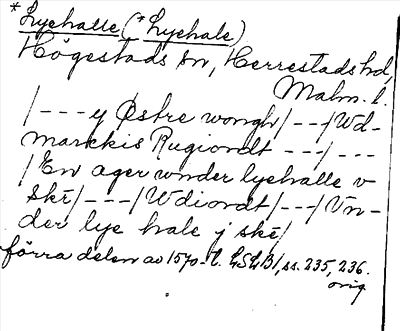 *Lyehalle (*Lyehale)
Högestads sn, Herrestads hd,
Malm. l.
/---y Østre wongh/---/Wd-
marckis Rugiordt ---/---
/En ager wnder lyehalle v
skē/---/Wdiordt/---/Vn-
der lye hale j skē/
förra delen av 1570-t. LSLB1, ss. 235, 236.
orig